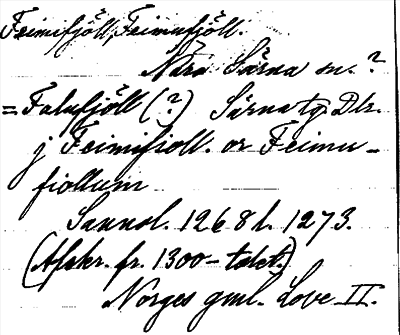 Feimifjöll, Feimufjöll.
Nära Särna sn.?
= Fulufjäll (?) Särna tg Dlr.
j Feimifioll. or Feimu-
fiollum
Sannol. 1268 l. 1273.
(Afskr. fr. 1300-talet.)
Norges gml. Love II.